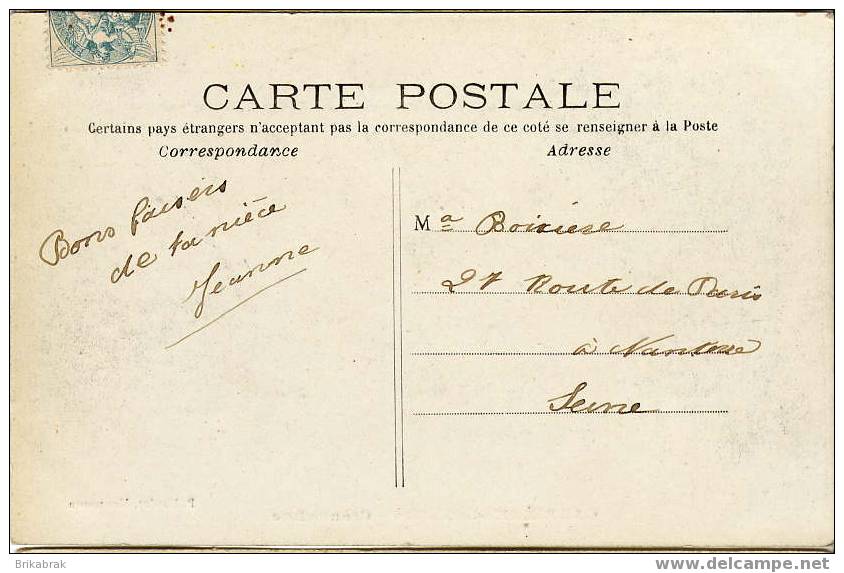 CARTE POSTALE
Certains pays étrangers n'acceptant pas la correspondance de ce coté se renseigner à la Poste
Correspondance
Adresse
Bons baisers
de ta nièce
Jeanne
Ma
27 Route de Paris
à Nanterre
Seine
Brikabrak
www.delcampe.net